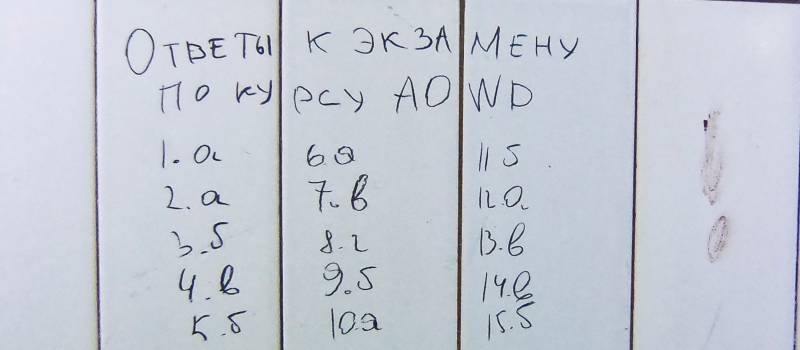 Ответы к экзамену
по курсу AOWD
1. а
2. а
3. б
4. в
5. б
6. а
7. в
8. г
9. б
10. а
11 б
12. а
13. в
14. в
15. б